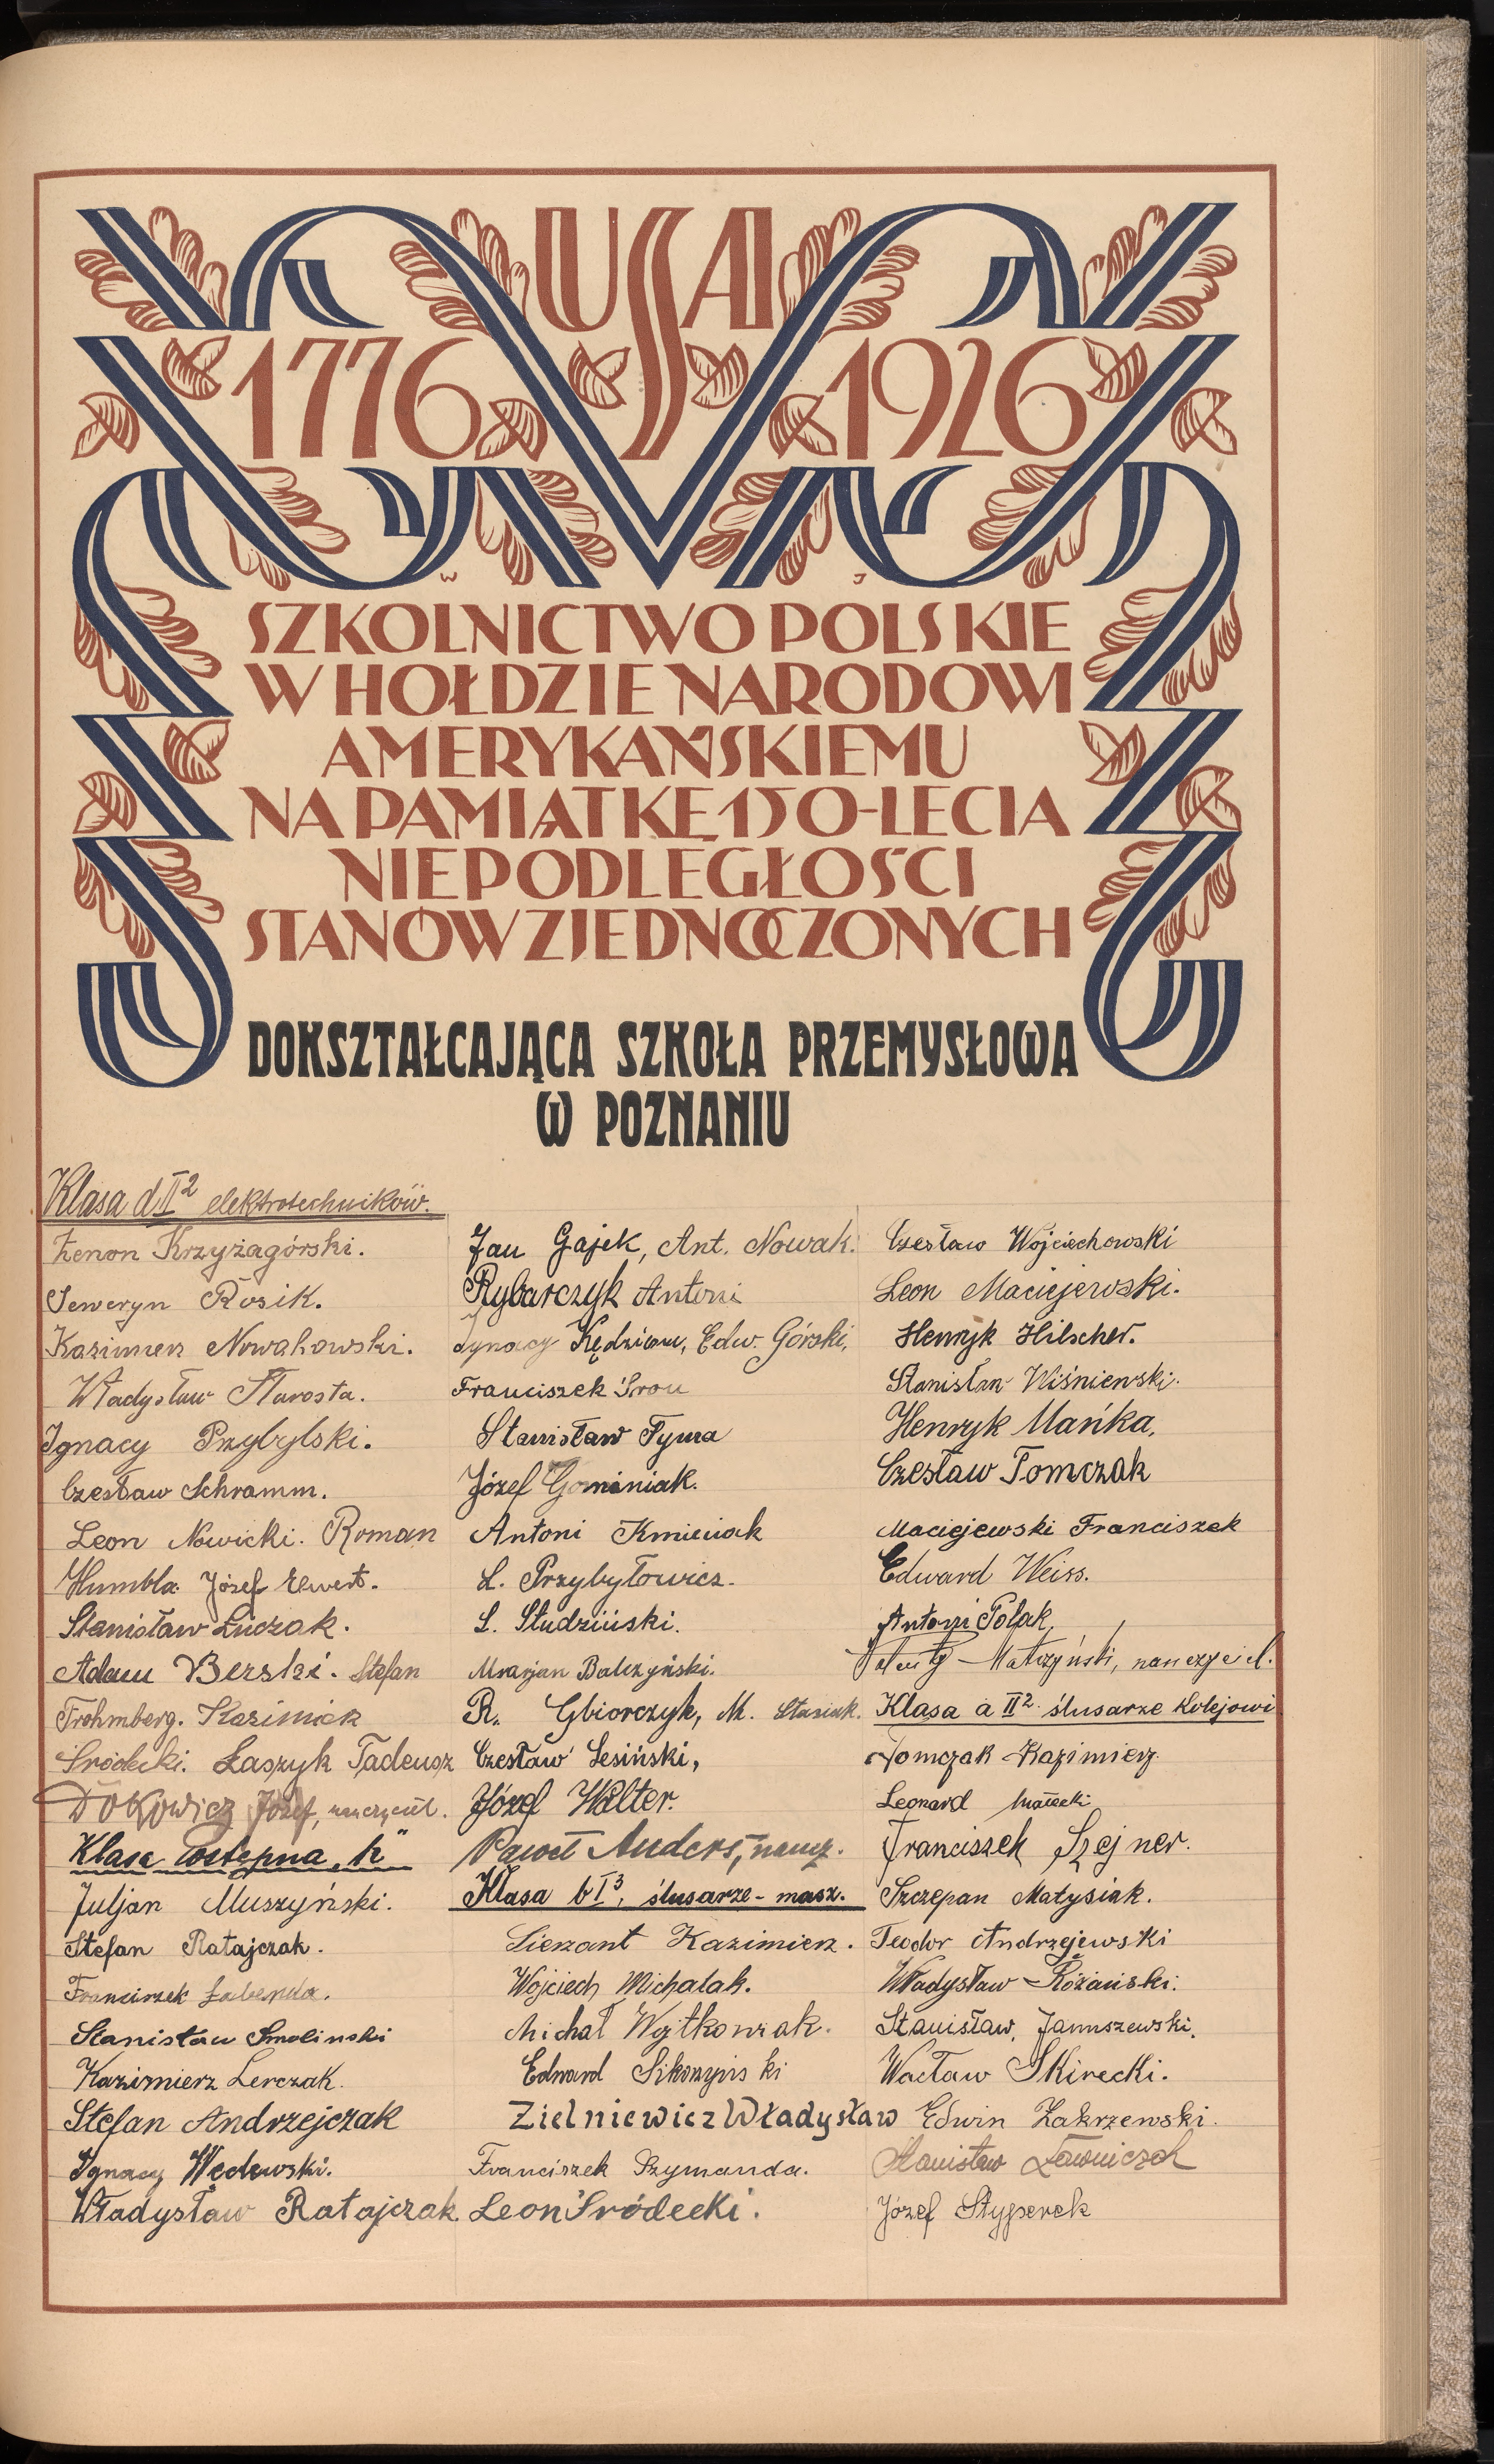 USA
1776 1926
W J
SZKOLNICTWO POLSKIE
W HOŁDZIE NARODOWI
AMERYKAŃSKIEMU
NA PAMIĄTKĘ 150-LECIA
NIEPODLEGŁOŚCI
STANÓW ZJEDNOCZONYCH
DOKSZTAŁCAJĄCA SZKOŁA PRZEMYSŁOWA
W POZNANIU
Klasa d II² elektrotechników.
Zenon Krzyżagórski.
Seweryn Rosik.
Kazimierz Nowakowski.
Władysław Starosta.
Ignacy Przybylski.
Czesław Schramm.
Leon Nowicki. Roman
Humbla. Józef Elwert.
Stanisław Łuczak.
Adam Berski. Stefan
Frohmberg. Kazimierz
Środecki. Łaszyk Tadeusz
Dokowicz Józef, nauczyciel.
Klasa wstępna „k"
Juljan Muszyński.
Stefan Ratajczak.
Franciszek Łabenda.
Stanisław Smolinski
Kazimierz Lerczak.
Stefan Andrzejczak
Ignacy Wędewski.
Władysław Ratajczak.
Jan Gajek, Ant. Nowak.
Rybarczyk Antoni
Ignacy Kędziora, Edw. Górski,
Franciszek Sron
Stanisław Tyma
Józef Gominiak.
Antoni Kmieciak
L. Przybyłowicz.
S. Studziński.
Marjan Balczyński.
R. Gbiorczyk, M. Stasiak.
Czesław Lesiński,
Józef Walter.
Paweł Anders, naucz.
Klasa b I³, ślusarze-masz.
Sierzant Kazimierz.
Wojciech Michalak.
Michał Wojtkowiak.
Edward Sikorzyński
Zielniewicz Władysław
Franciszek Szymanda.
Leon Środecki.
Czesław Wojciechowski
Leon Maciejewski.
Henryk Hilscher.
Stanisław Wiśniewski.
Henryk Mańka,
Czesław Tomczak
Maciejewski Franciszek
Edward Weiss.
Antoni Polak,
Walenty Matczyński, nauczyciel.
Klasa a II² ślusarze kolejowi
Tomczak Kazimierz
Leonard Małecki
Franciszek Szejner.
Szczepan Matysiak.
Teodor Andrzejewski
Władysław Różański.
Stanisław Januszewski.
Wacław Skirecki.
Edwin Zakrzewski.
Stanisław Ławniczak
Józef Styperek